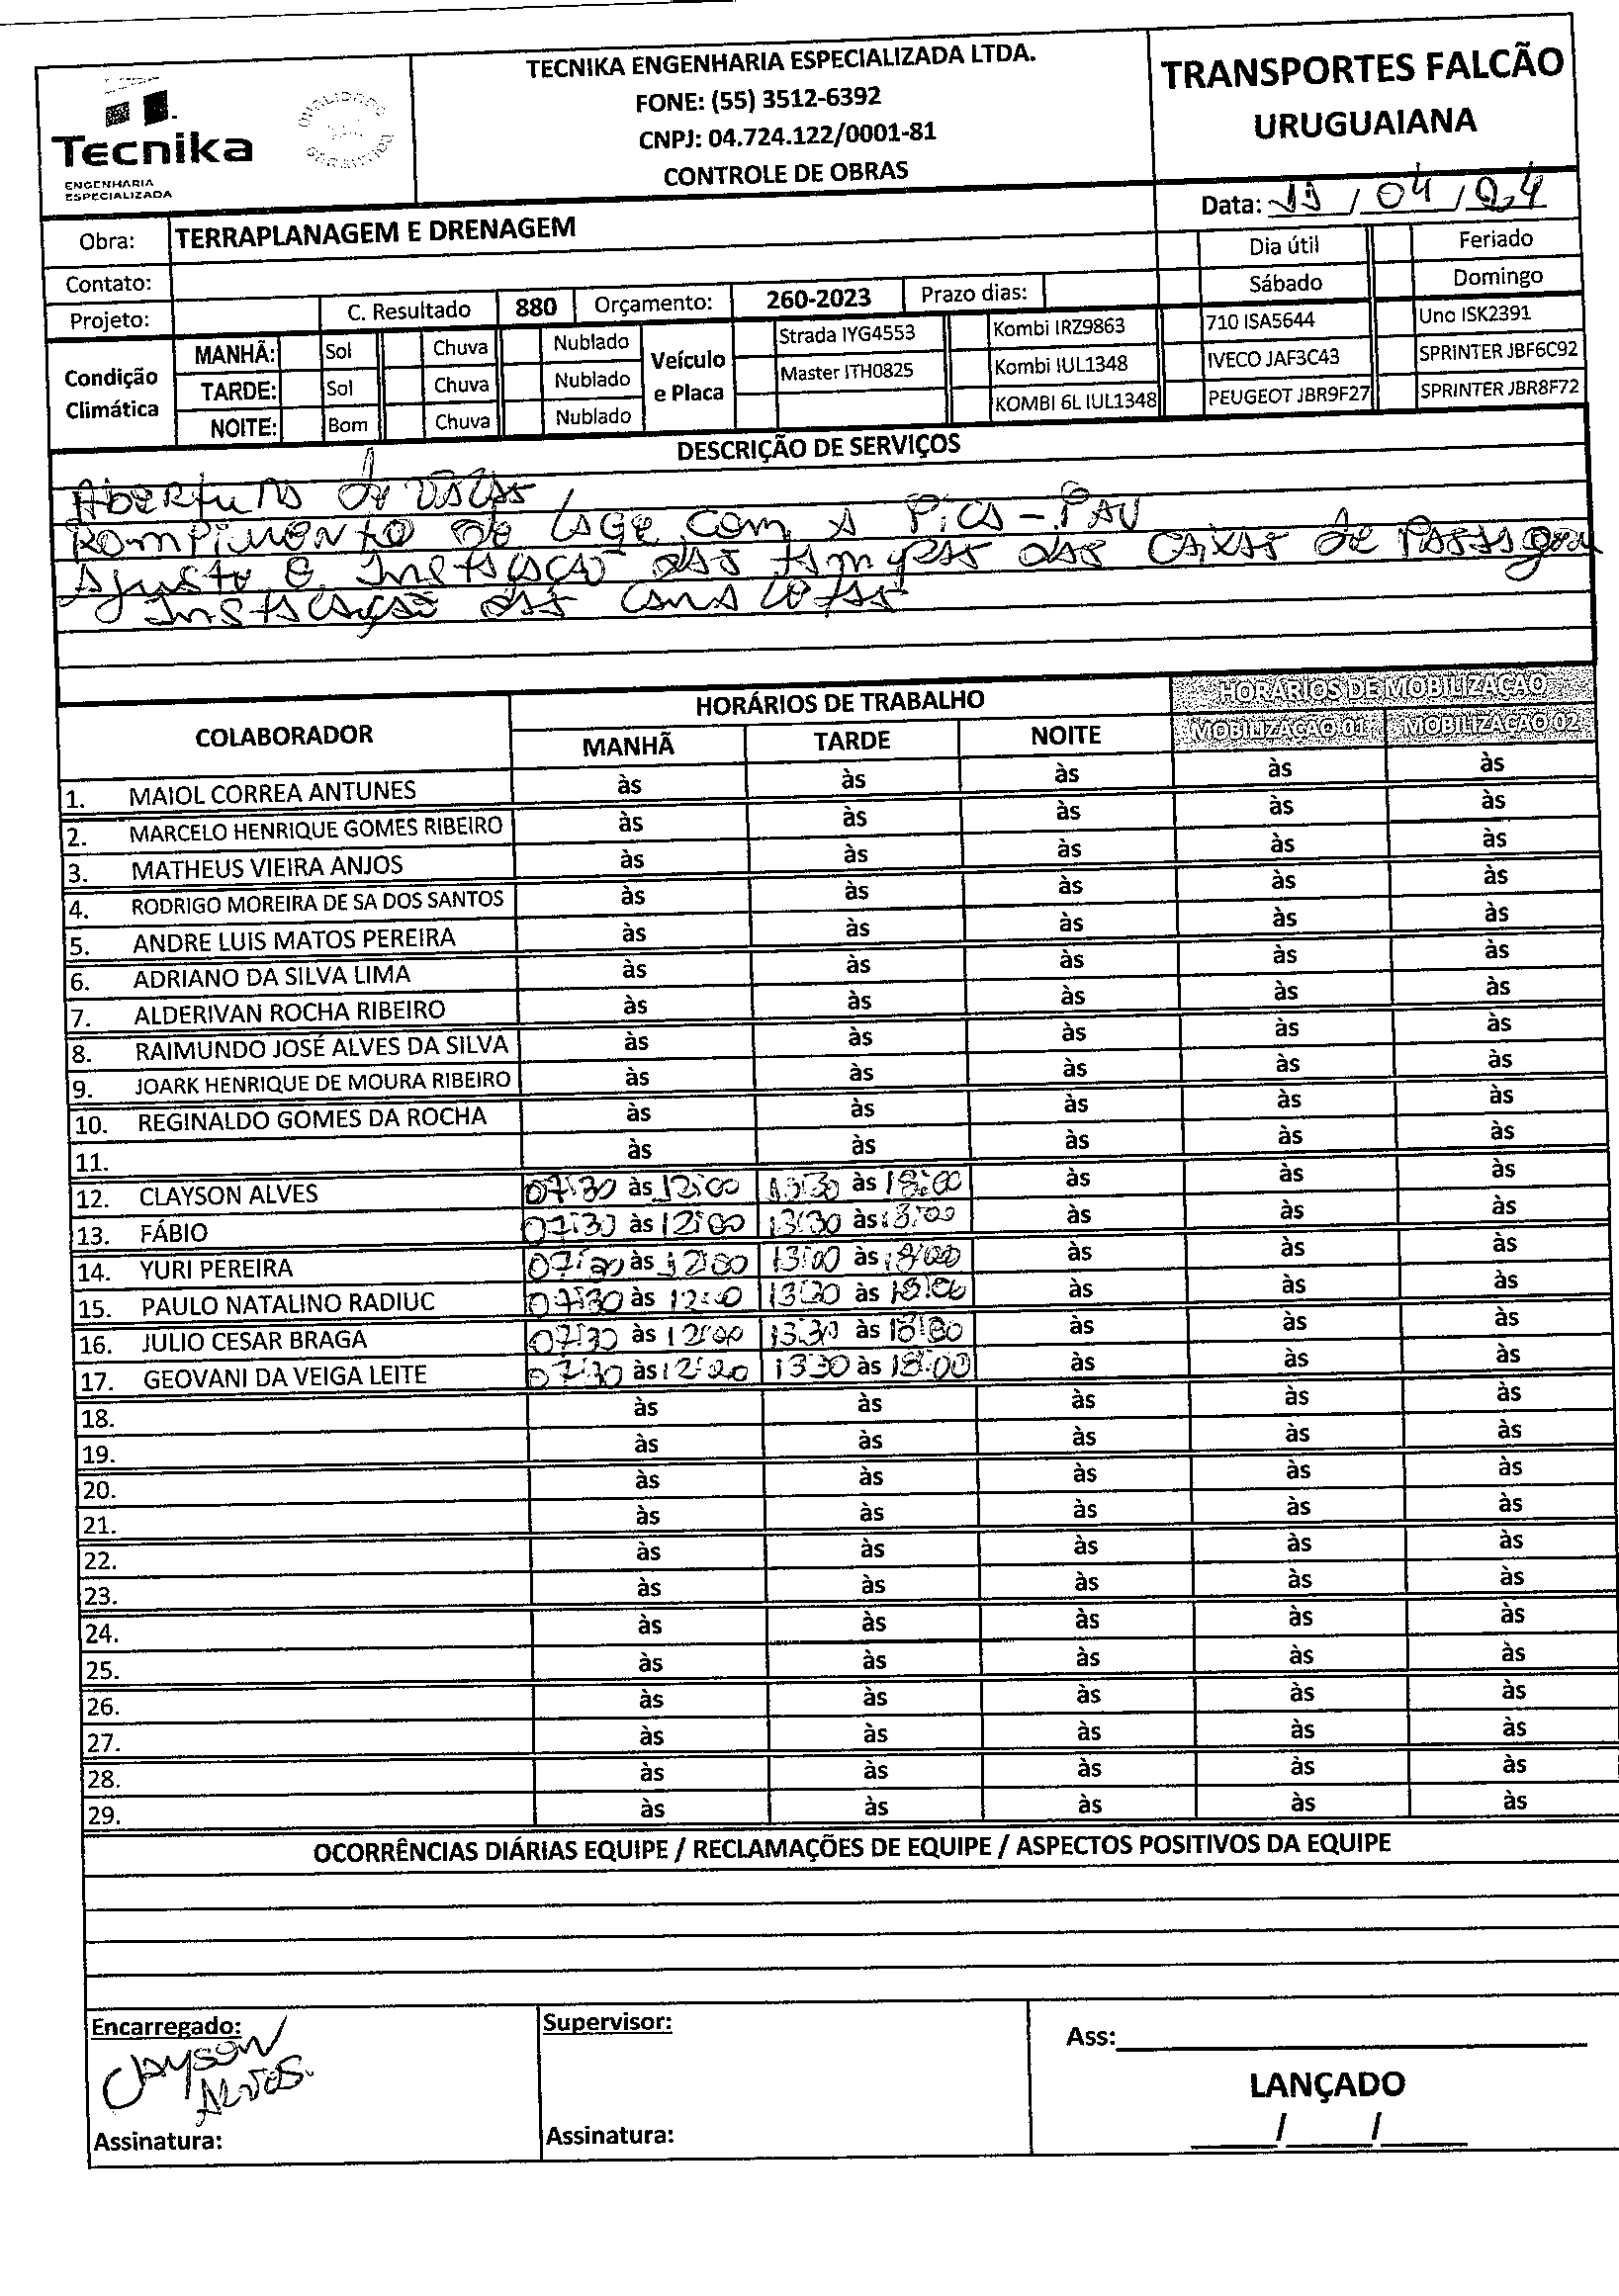 TECNIKA ENGENHARIA ESPECIALIZADA LTDA.
FONE: (55) 3512-6392
CNPJ: 04.724.122/0001-81
CONTROLE DE OBRAS
TRANSPORTES FALCÃO
URUGUAIANA
Tecnika
ENGENHARIA
ESPECIALIZADA
QUALIDADE
GARANTIDA
Data: /04/24
Obra: TERRAPLANAGEM E DRENAGEM
Dia útil Feriado
Contato:
Sábado Domingo
Projeto: C. Resultado 880 Orçamento: 260-2023 Prazo dias:
Condição Climática
MANHÃ: Sol Chuva Nublado
TARDE: Sol Chuva Nublado
NOITE: Bom Chuva Nublado
Veículo e Placa
Strada IYG4553 Kombi IRZ9863 710 ISA5644 Uno ISK2391
Master ITH0825 Kombi IUL1348 IVECO JAF3C43 SPRINTER JBF6C92
KOMBI 6L IUL1348 PEUGEOT JBR9F27 SPRINTER JBR8F72
DESCRIÇÃO DE SERVIÇOS
Abertura de valas
Rompimento de lage com a Pica-Pau
Ajuste e Instalação das tampas das caixas de Passagem
Instalação das canaletas
COLABORADOR HORÁRIOS DE TRABALHO HORÁRIOS DE MOBILIZAÇÃO
MANHÃ TARDE NOITE MOBILIZAÇÃO 01 MOBILIZAÇÃO 02
1. MAIOL CORREA ANTUNES às às às às às
2. MARCELO HENRIQUE GOMES RIBEIRO às às às às às
3. MATHEUS VIEIRA ANJOS às às às às às
4. RODRIGO MOREIRA DE SA DOS SANTOS às às às às às
5. ANDRE LUIS MATOS PEREIRA às às às às às
6. ADRIANO DA SILVA LIMA às às às às às
7. ALDERIVAN ROCHA RIBEIRO às às às às às
8. RAIMUNDO JOSÉ ALVES DA SILVA às às às às às
9. JOARK HENRIQUE DE MOURA RIBEIRO às às às às às
10. REGINALDO GOMES DA ROCHA às às às às às
11. às às às às às
12. CLAYSON ALVES 07:30 às 12:00 13:30 às 18:00 às às às
13. FÁBIO 07:30 às 12:00 13:30 às 18:00 às às às
14. YURI PEREIRA 07:30 às 12:00 13:00 às 18:00 às às às
15. PAULO NATALINO RADIUC 07:30 às 12:00 13:30 às 18:00 às às às
16. JULIO CESAR BRAGA 07:30 às 12:00 13:30 às 18:00 às às às
17. GEOVANI DA VEIGA LEITE 07:30 às 12:00 13:30 às 18:00 às às às
18. às às às às às
19. às às às às às
20. às às às às às
21. às às às às às
22. às às às às às
23. às às às às às
24. às às às às às
25. às às às às às
26. às às às às às
27. às às às às às
28. às às às às às
29. às às às às às
OCORRÊNCIAS DIÁRIAS EQUIPE / RECLAMAÇÕES DE EQUIPE / ASPECTOS POSITIVOS DA EQUIPE
Encarregado: Supervisor: Ass:
Clayson
Alves
LANÇADO
Assinatura: Assinatura: / /